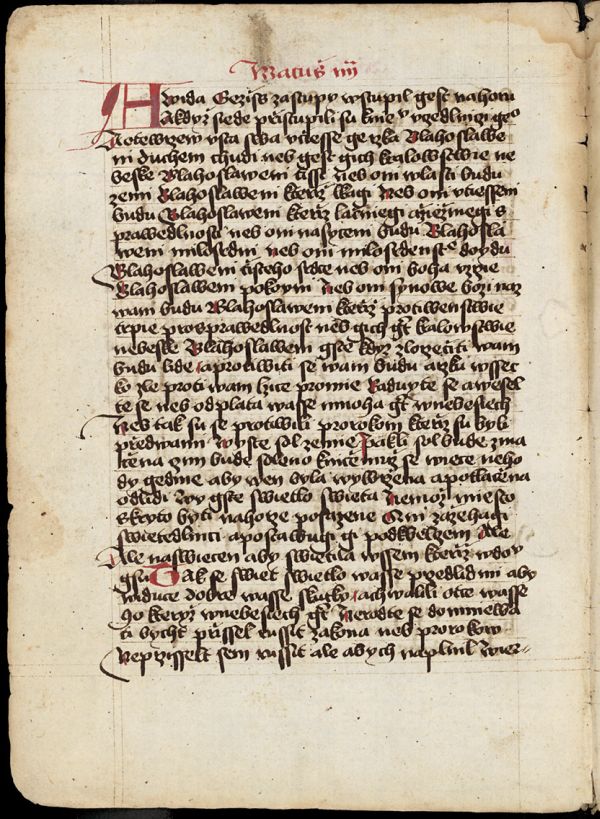 Matus iiij
A wida Gezis zastupy wstupil gest nahoru
Akdyz siede przistupili su knie v vzedlnizi geo
Aotewrzew vsta swa vciesse ge rzka Blahoslawe
ni duchem chudi neb gest gich kralowstwie ne
beske Blahoslaweni tissi neb oni wlasti budu
zemi Blahoslaweni kterzz lkagi Neb oni vtiesseni
budu Blahoslaweni kterzz laczniegi aziezniegi s
prawedlnosti neb oni nasyceni budu Blahosla
weni milosrdni neb oni milosrdenste dojdu
Blahoslaweni cisteho srdce neb oni boha vzrzie
Blahoslaweni pokoyni Neb oni synowe bozi naz
wani budu Blahoslaweni kterzz protiwenstwie
trpie prosprawedlnost neb gich gt kralowstwie
nebeske Blahoslaweni gste kdyz zlorzeciti wam
budu lide aprotiwiti se wam budu arzku wssec
ko zle proti wam lzice promie Raduyte se awesel
te se neb odplata wasse mnoha gt wnebesiech
Neb tak su se protiwili prorokom kterzz su byli
przedwami wy ste sol zemie Pakli sol bude zma
rzena zim bude soleno knicemuz se wiece neho
dy gedine aby wen byla wywrzena apotlaczena
odlidi wy gste swietlo swieta Nemoz miesto
skryto byti nahorze posazene Ani zazehagi
swiecedlnici apostawugi gi podkbelcem Ale
Ale naswiecen aby swietila wssem kterzz wdom
gsu Tak se swiet swietlo wasse przedlidmi aby
widuce dobre wasse skutky achwalili otce wasse
ho kteryz wnebesiech gt Nerodte se domniewa
ti bycht przissel russit zakona neb prorokow
Neprzisselt sem russit ale abych naplnil wier-